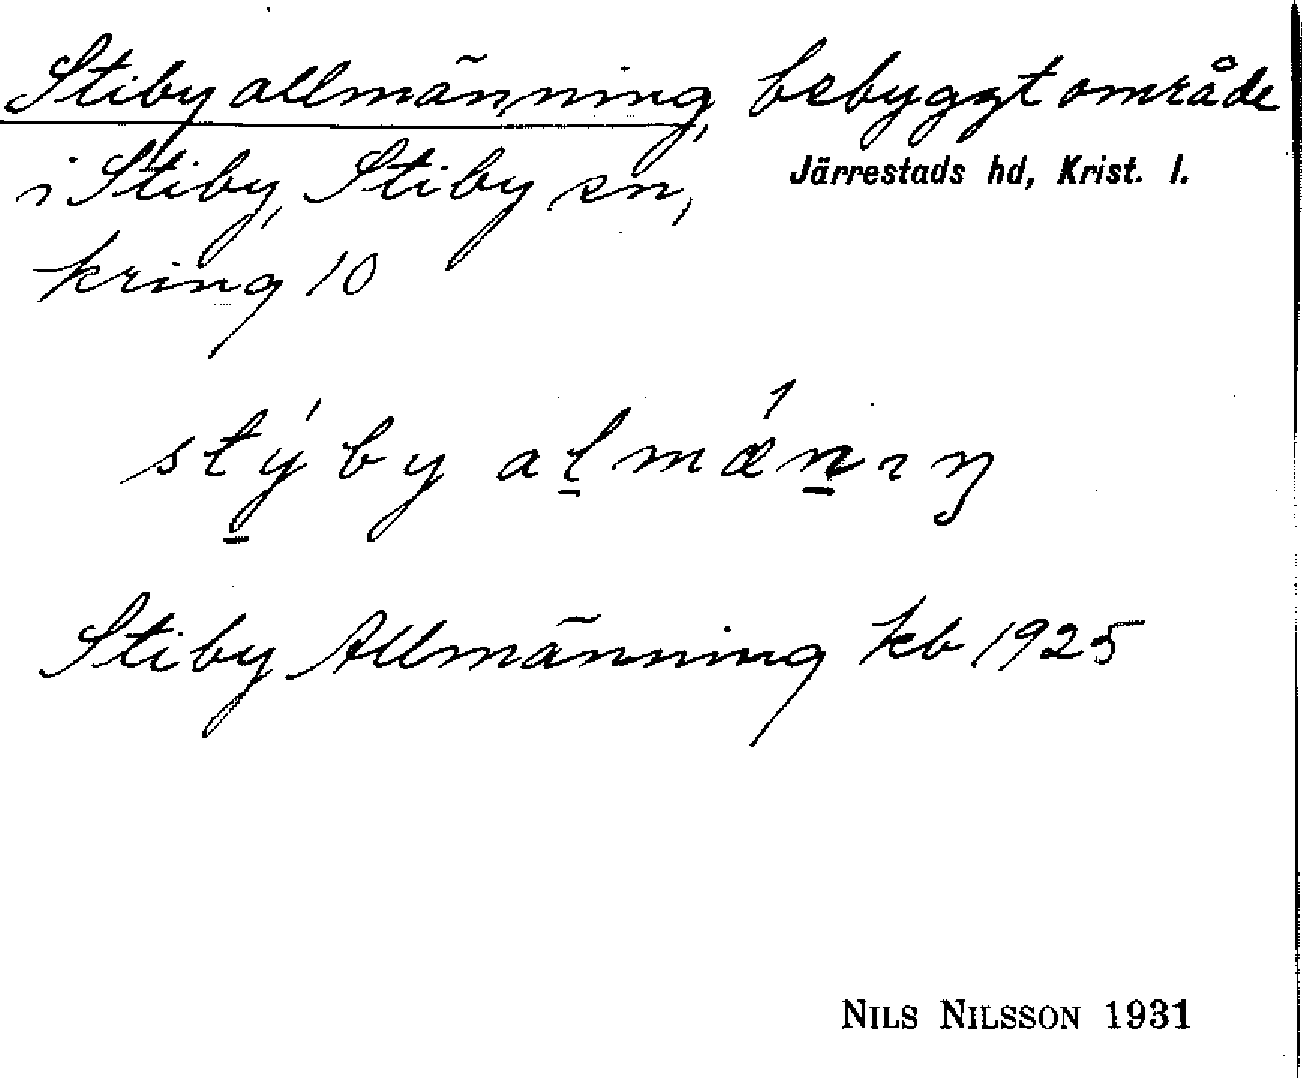 Stiby allmänning, bebyggt område
i Stiby, Stiby sn,
Järrestads hd, Krist. l.
kring 10
stý̱by aḻmǽṉıŋ
Stiby Allmänning kb 1925
NILS NILSSON 1931